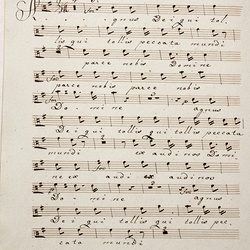 Agnus Dei qui tol-
lis qui tollis peccata mundi
parce nobis Domine
parce nobis parce nobis
Domine agnus
Dei qui tollis qui tollis peccata
mundi exaudi nos Domi
ne ex audi exaudi nos
Domine agnus
Dei qui tollis qui tollis pec
cata mundi